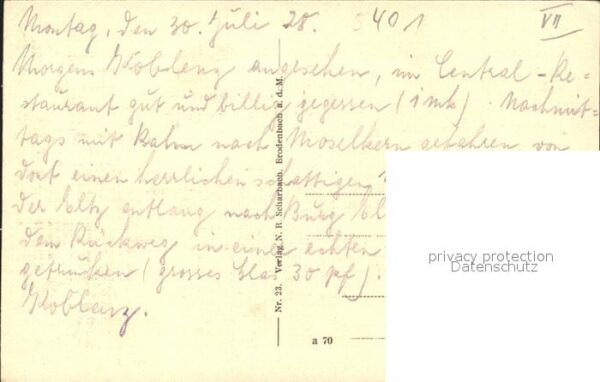 Montag, den 30. Juli 28. 5401 VII
Morgens Koblenz angesehen, im Central-Re-
staurant gut und billig gegessen (1 mk). Nachmit-
tags mit Kahn nach Moselkern gefahren, von
dort einen herrlichen schattigen
der Eltz entlang nach Burg El
dem Rückweg in einen echten
getrunken (grosses Glas 30 pf).
Koblenz.
Nr. 23. Verlag N. R. Scharbach, Brodenbach a. d. M.
a 70
privacy protection
Datenschutz